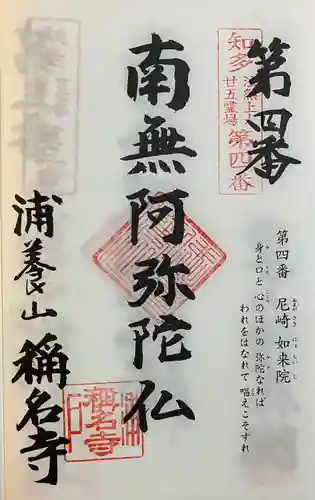 第四番
知多
法然上人
廿五霊場
第四番
第四番 尼崎 如来院
身と口と 心のほかの 弥陀なれば
われをはなれて 唱えこそすれ
南無阿弥陀仏
浦養山 稱名寺
稱名寺